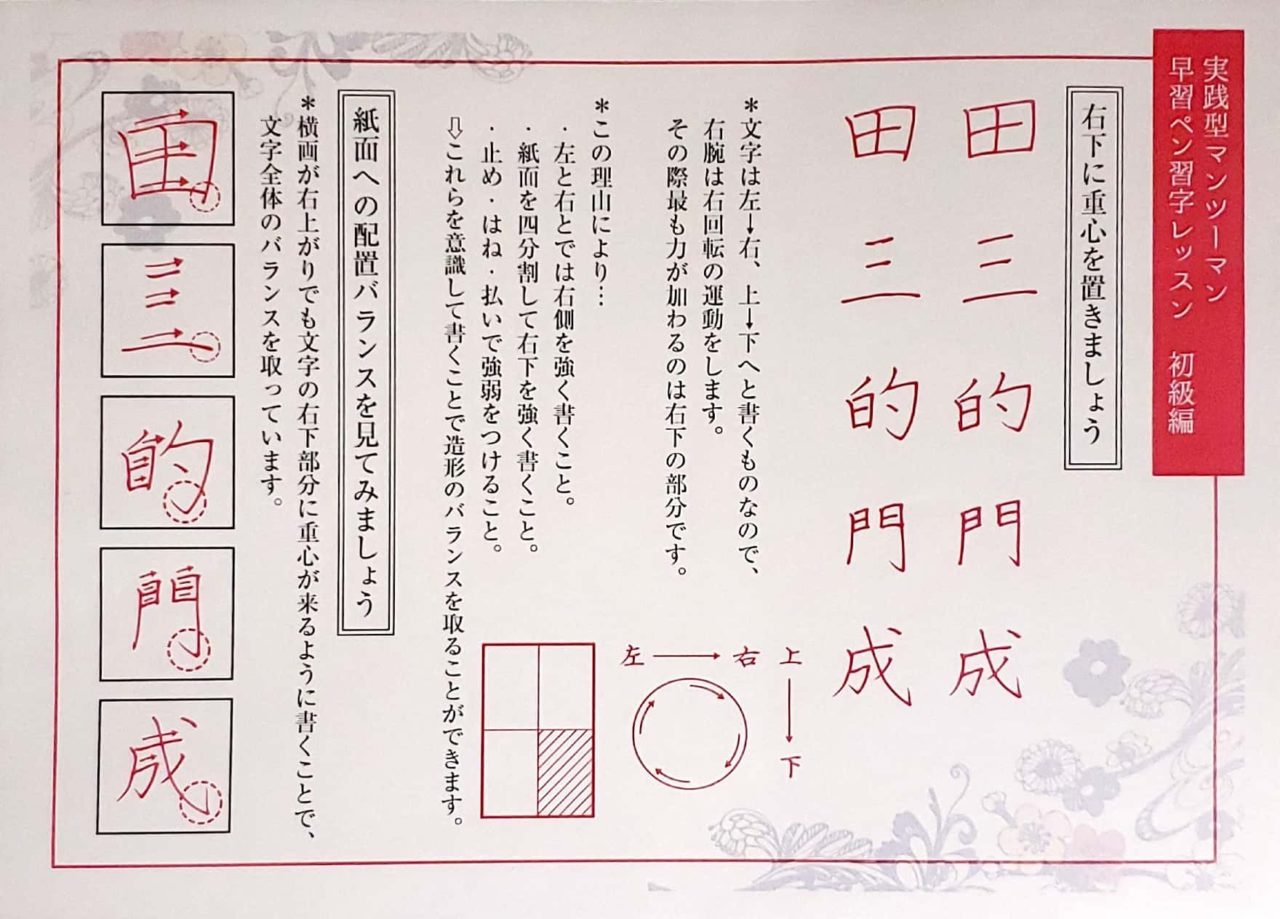 実践型マンツーマン
早習ペン習字レッスン　初級編
右下に重心を置きましょう
田三的門成
田三的門成
＊文字は左→右、上→下へと書くものなので、
右腕は右回転の運動をします。
その際最も力が加わるのは右下の部分です。
上→下
左→右
＊この理山により…
・左と右とでは右側を強く書くこと。
・紙面を四分割して右下を強く書くこと。
・止め・はね・払いで強弱をつけること。
⇨これらを意識して書くことで造形のバランスを取ることができます。
紙面への配置バランスを見てみましょう
＊横画が右上がりでも文字の右下部分に重心が来るように書くことで、
文字全体のバランスを取っています。
田
三
的
門
成